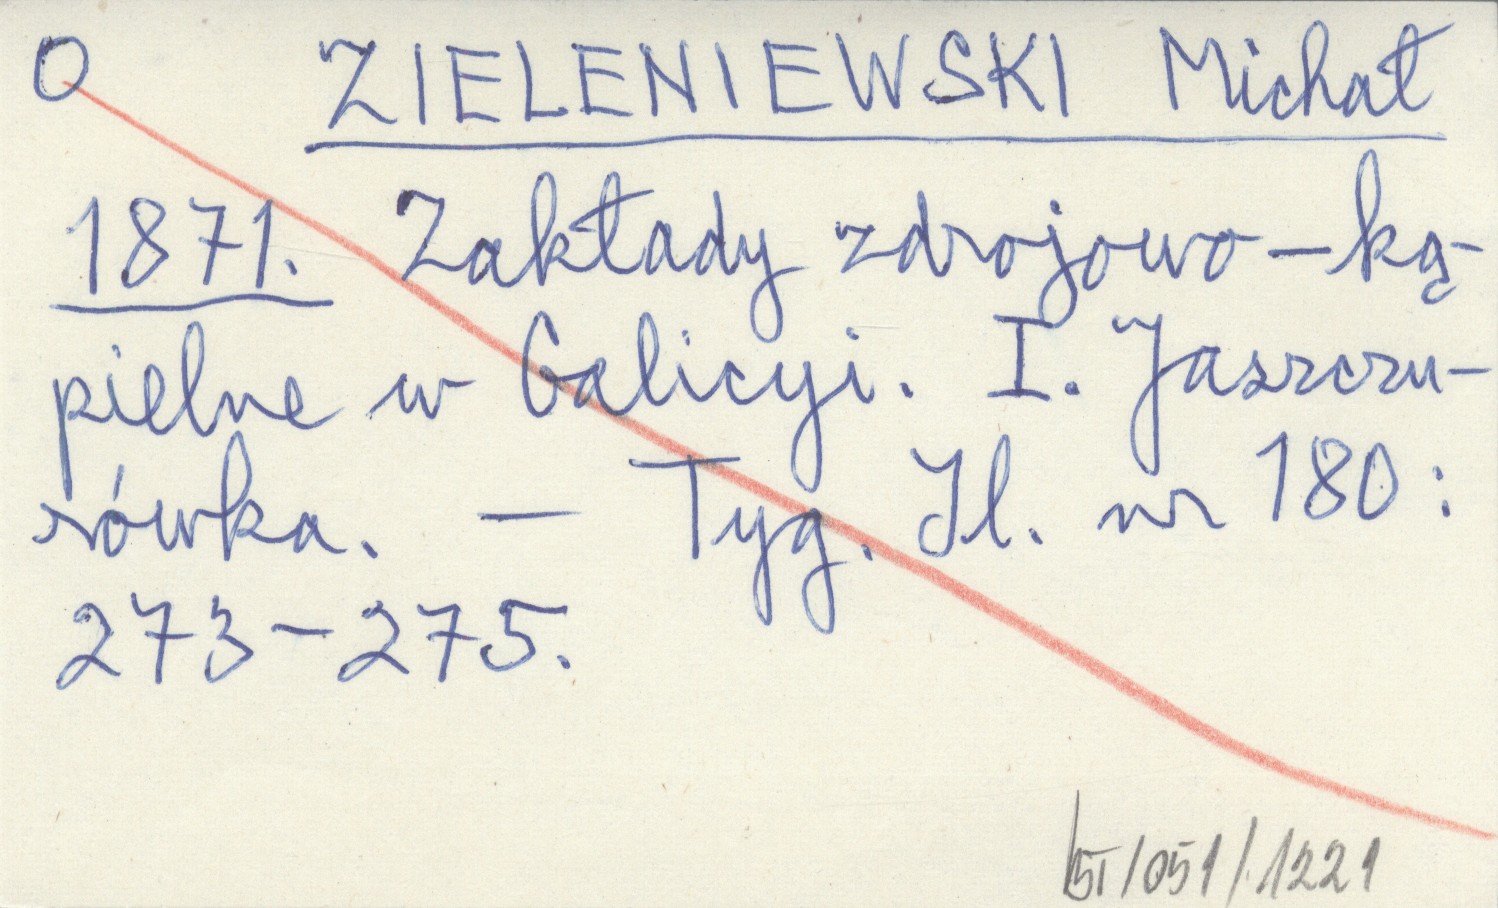 O ZIELENIEWSKI Michał
1871. Zakłady zdrojowo-ką-
pielne w Galicyi. I. Jaszczu-
rówka. — Tyg. Il. nr 180:
273-275.
/051/.1221